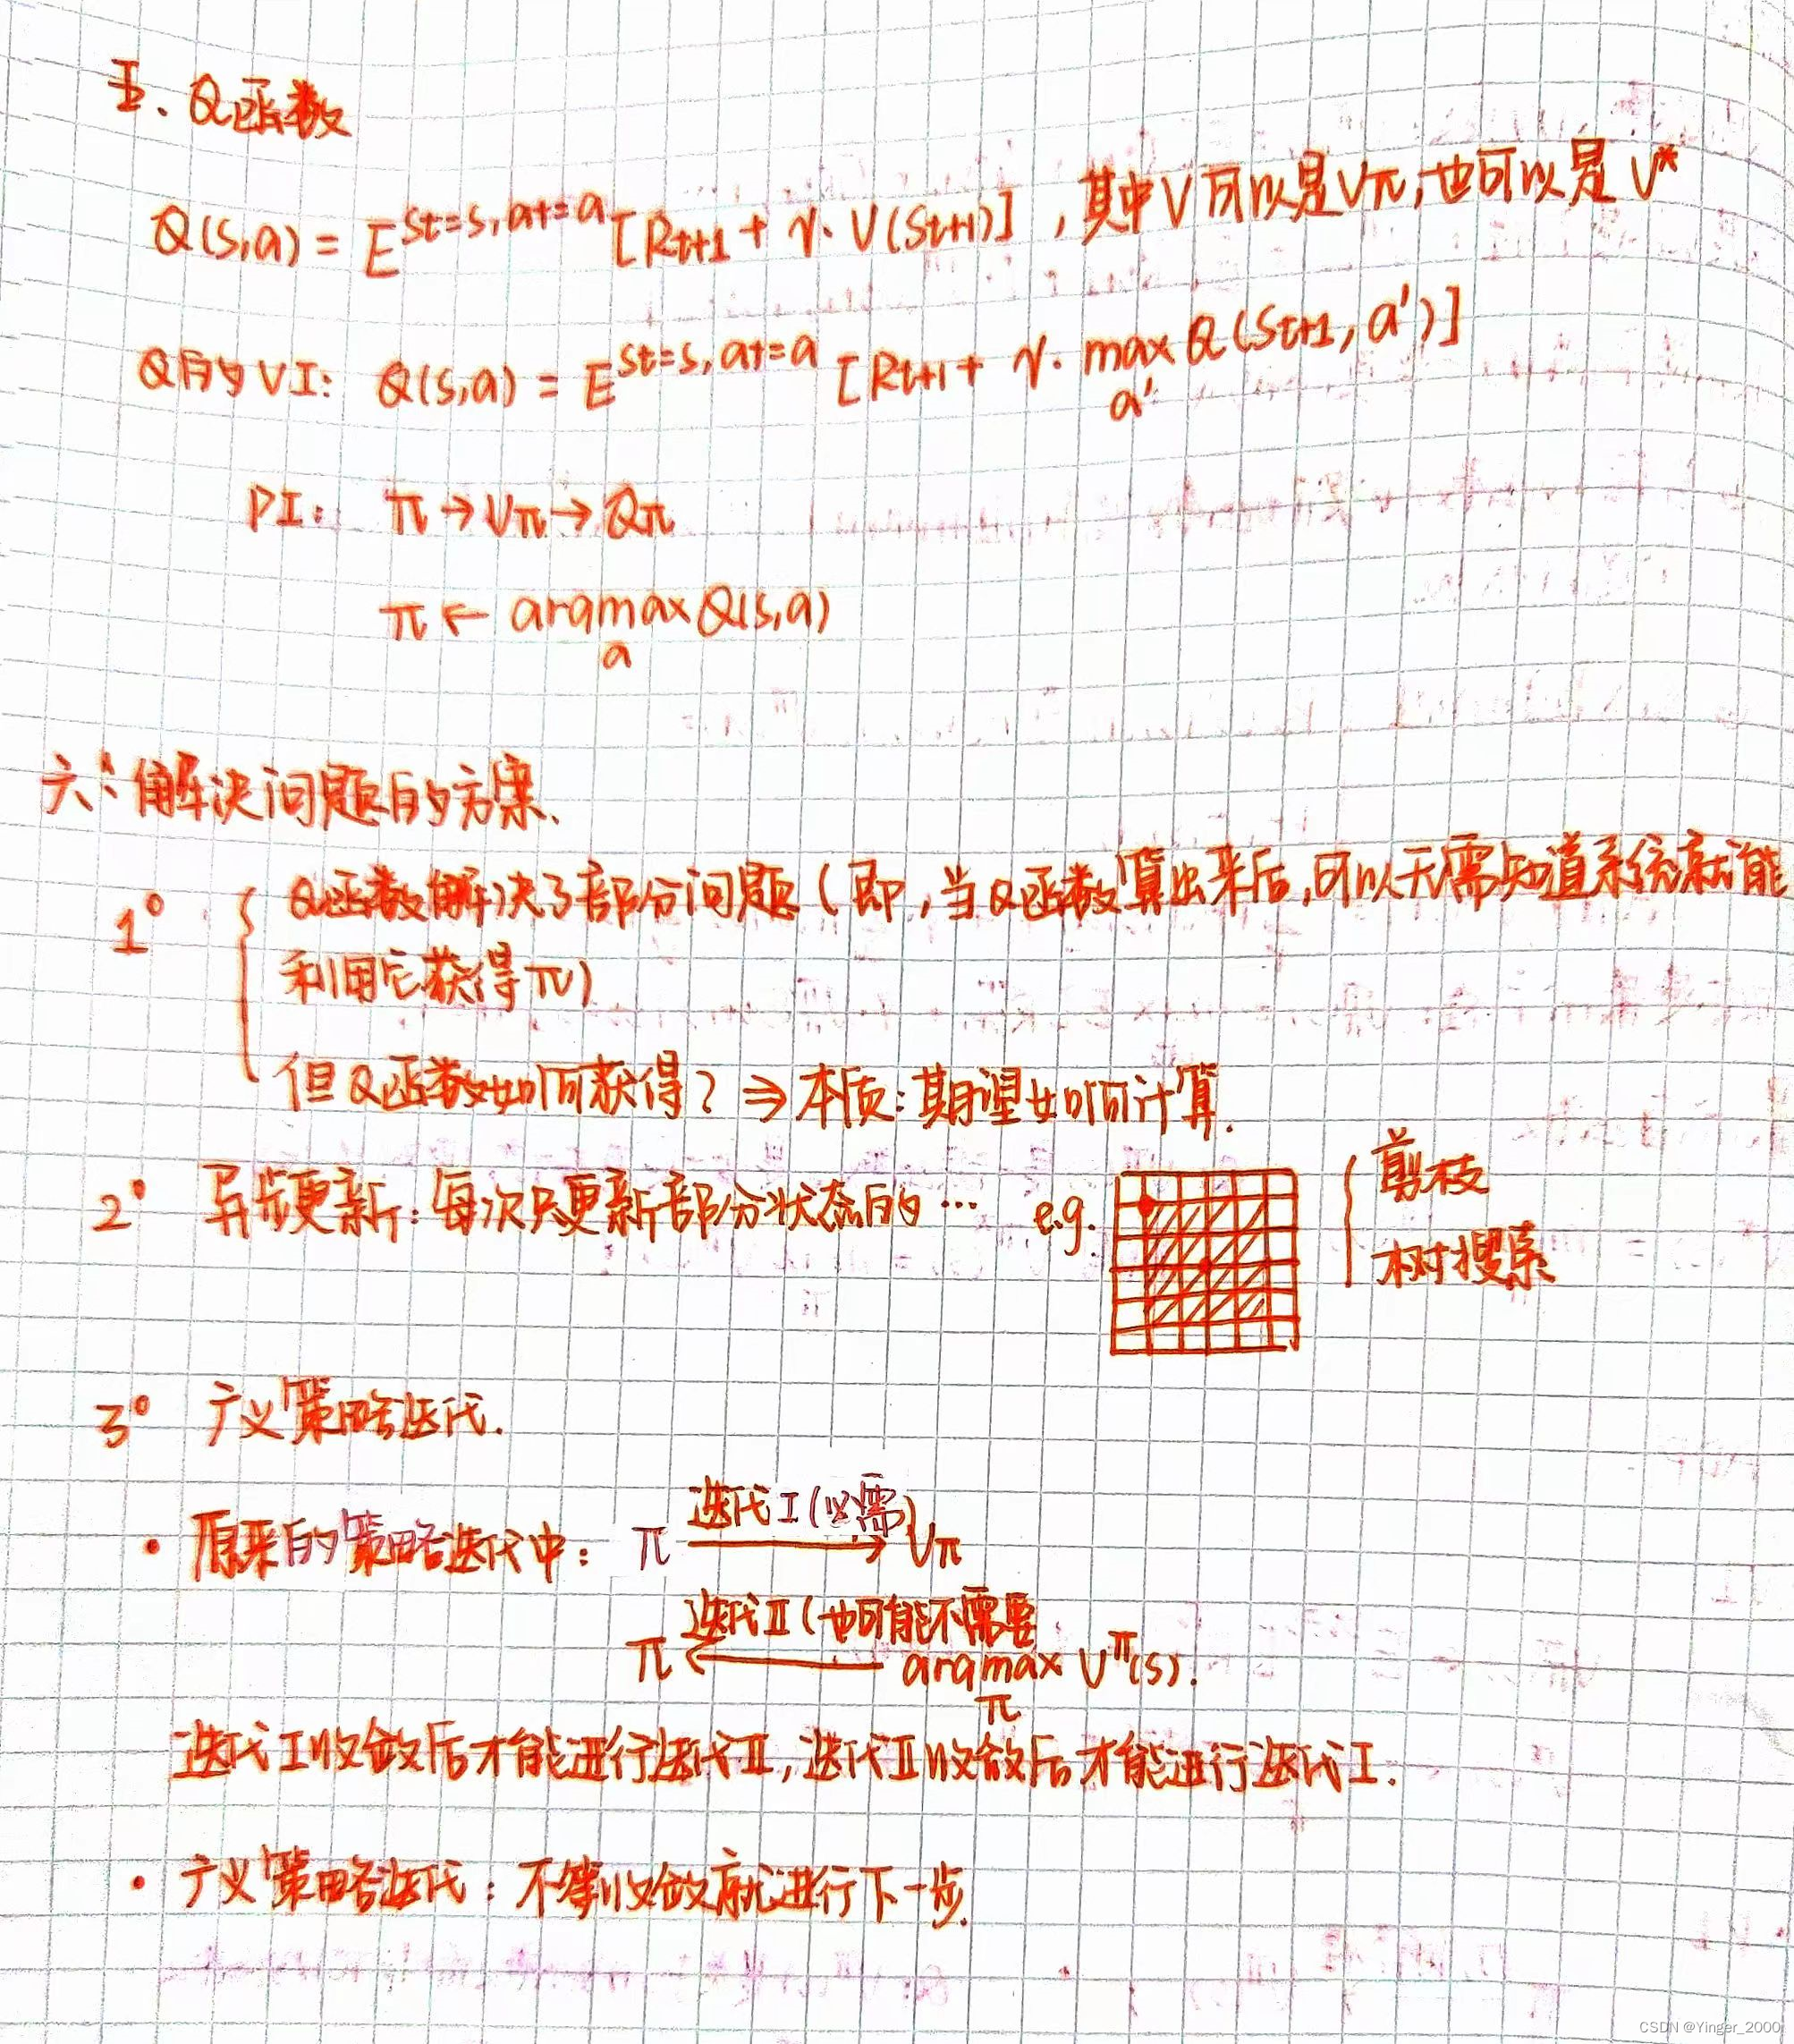 五、Q函数
Q(s,a) = E^{St=s, at=a}[Rt+1 + γ·V(St+1)],其中V可以是Vπ,也可以是V*
Q的VI: Q(s,a) = E^{St=s, at=a}[Rt+1 + γ·max_{a'} Q(St+1, a')]
PI: π→Vπ→Qπ
π ← argmax_a Q(s,a)
六、解决问题的方案、
1° Q函数解决了部分问题(即,当Q函数算出来后,可以无需知道系统就能
利用它获得π)
但Q函数如何获得?⇒本质:期望如何计算.
2° 异步更新:每次只更新部分状态的… e.g.
剪枝
树搜索
3° 广义策略迭代.
· 原来的策略迭代中: π 迭代I(必需)→ Vπ
迭代II(也可能不需要
π ← argmax_π V^π(s).
迭代I收敛后才能进行迭代II,迭代II收敛后才能进行迭代I.
· 广义策略迭代:不等收敛就进行下一步.
CSDN @Yinger_2000